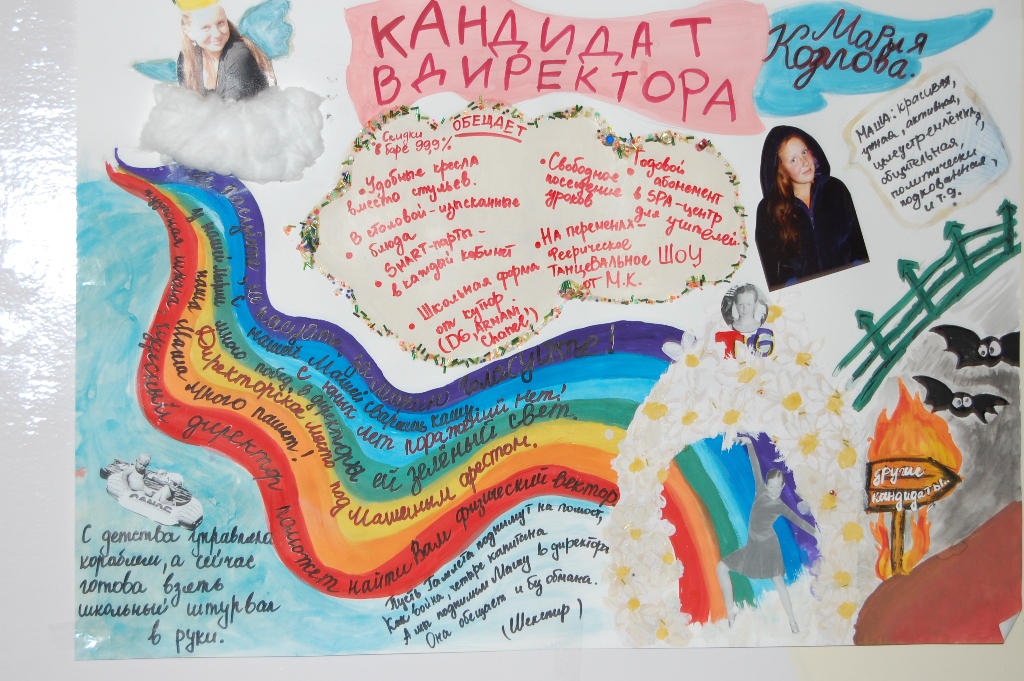 КАНДИДАТ
В ДИРЕКТОРА
Мария
Козлова.
Маша: красивая,
умная, активная,
целеустремлённая,
общительная,
политически
подкованная,
и т.д.
ОБЕЩАЕТ
Скидки
в баре 99,9%
• Удобные кресла
вместо стульев.
В столовой - изысканные
• блюда
SMART-парты -
• в каждый кабинет
• Школьная форма
от кутюр
(DG, ARMANI,
Chanel)
• Свободное
посещение
уроков
• Годовой
абонемент
в SPA-центр
для учителей
• На переменах -
Феерическое
ТАНЦЕВАЛЬНОЕ ШОУ
от М.К.
голосуйте!
У нашей Марии с юных лет поражений нет!
С нашей Машей сваришь кашу
ей зелёный свет.
Директорское место под
Машиным арестом.
наша Маша много пашет!
директор поможет найти Вам физический вектор
С детства управляла
кораблём, а сейчас
готова взять
школьный штурвал
в руки.
Пусть Гамлета поднимут на помост,
Как воина, четыре капитана
А мы поднимем Машу в директора
Она обещает и без обмана.
(Шекспир)
другие
кандидаты..